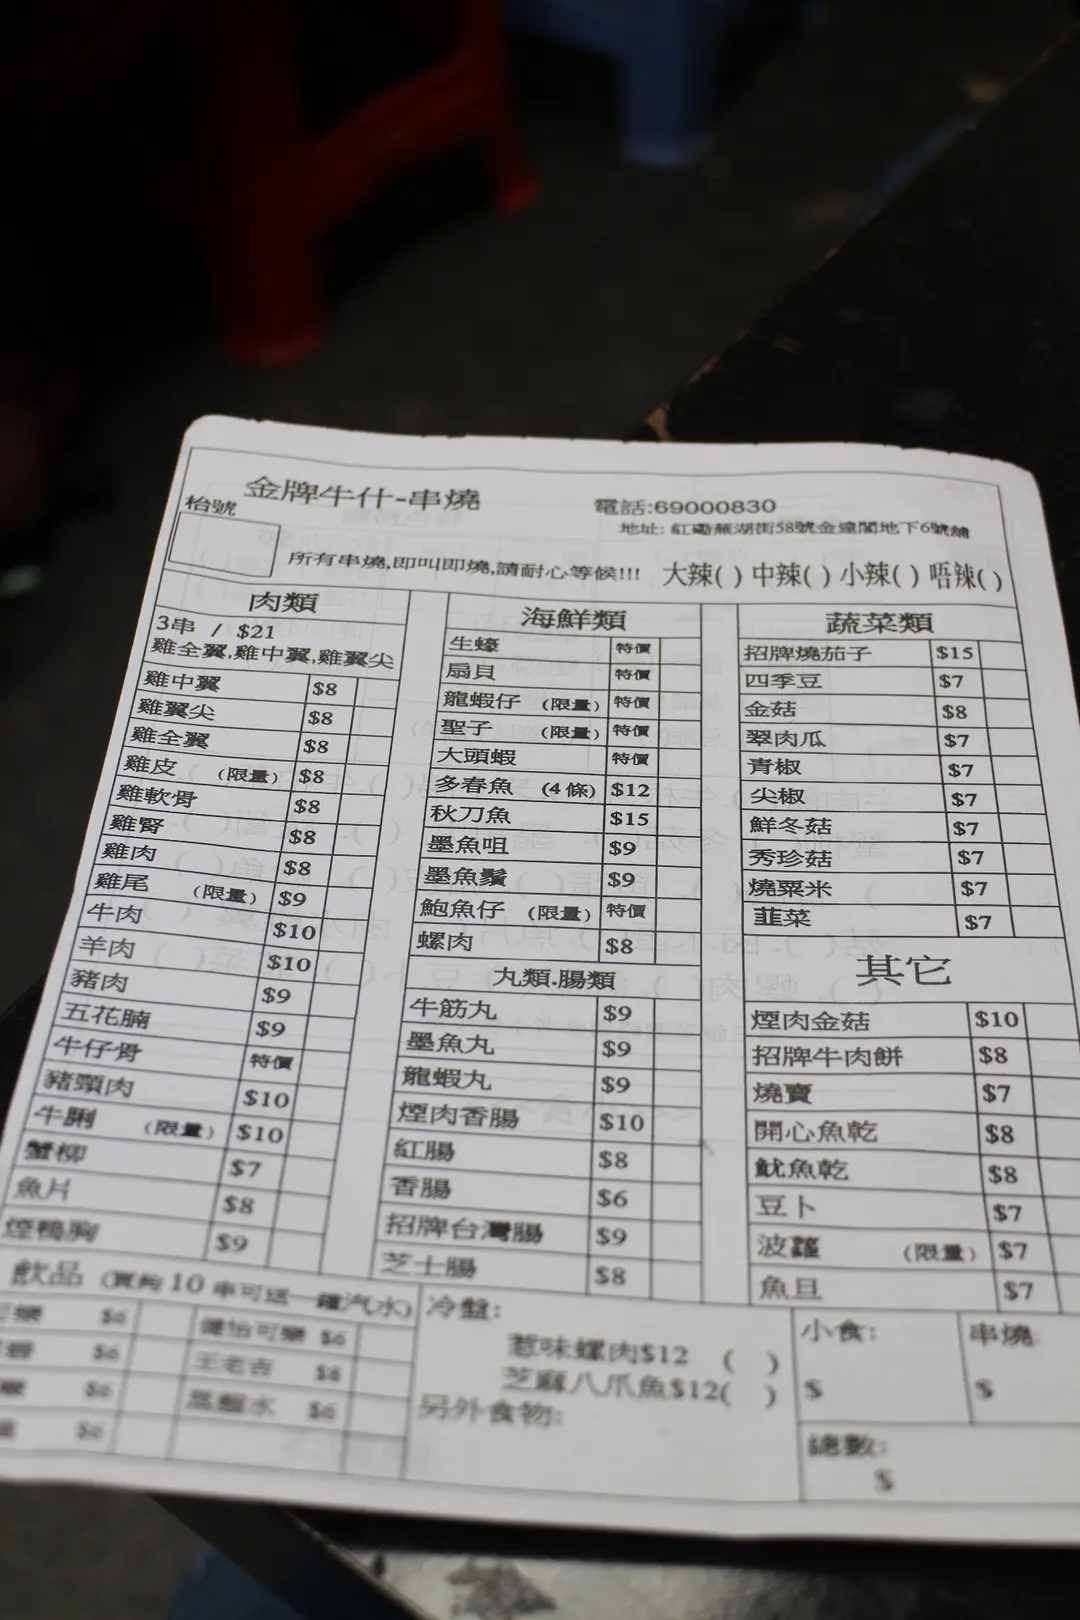 金牌牛什-串燒
電話:69000830
枱號
地址: 紅磡蕪湖街58號金達閣地下6號舖
所有串燒,即叫即燒,請耐心等候!!! 大辣( ) 中辣( ) 小辣( ) 唔辣( )
肉類
3串 / $21
雞全翼,雞中翼,雞翼尖
雞中翼 $8
雞翼尖 $8
雞全翼 $8
雞皮 (限量) $8
雞軟骨 $8
雞腎 $8
雞肉 $8
雞尾 (限量) $9
牛肉 $10
羊肉 $10
豬肉 $9
五花腩 $9
牛仔骨 特價
豬頸肉 $10
牛脷 (限量) $10
蟹柳 $7
魚片 $8
煙鴨胸 $9
海鮮類
生蠔 特價
扇貝 特價
龍蝦仔 (限量) 特價
聖子 (限量) 特價
大頭蝦 特價
多春魚 (4條) $12
秋刀魚 $15
墨魚咀 $9
墨魚鬚 $9
鮑魚仔 (限量) 特價
螺肉 $8
丸類.腸類
牛筋丸 $9
墨魚丸 $9
龍蝦丸 $9
煙肉香腸 $10
紅腸 $8
香腸 $6
招牌台灣腸 $9
芝士腸 $8
蔬菜類
招牌燒茄子 $15
四季豆 $7
金菇 $8
翠肉瓜 $7
青椒 $7
尖椒 $7
鮮冬菇 $7
秀珍菇 $7
燒粟米 $7
韮菜 $7
其它
煙肉金菇 $10
招牌牛肉餅 $8
燒賣 $7
開心魚乾 $8
魷魚乾 $8
豆卜 $7
波蘿 (限量) $7
魚旦 $7
飲品 (買夠 10 串可送一罐汽水)
樂 $6
$6
$6
$6
健怡可樂 $6
王老吉 $8
$6
冷盤:
惹味螺肉$12 ( )
芝麻八爪魚$12( )
另外食物:
小食:
$
串燒:
$
總數:
$